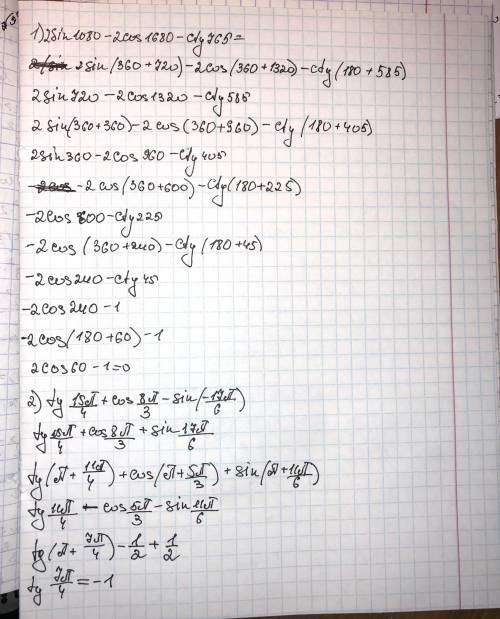 1) 2sin1080-2cos1680-ctg765=
2sin(360+720)-2cos(360+1320)-ctg(180+585)
2sin720-2cos1320-ctg585
2sin(360+360)-2cos(360+960)-ctg(180+405)
2sin360-2cos960-ctg405
-2cos(360+600)-ctg(180+225)
-2cos600-ctg225
-2cos(360+240)-ctg(180+45)
-2cos240-ctg45
-2cos240-1
-2cos(180+60)-1
2cos60-1=0
2) tg 15π/4 + cos 8π/3 - sin(-17π/6)
tg 15π/4 + cos 8π/3 + sin 17π/6
tg(π+ 11π/4) + cos(π+ 5π/3) + sin(π+ 11π/6)
tg 11π/4 - cos 5π/3 - sin 11π/6
tg(π+ 7π/4) - 1/2 + 1/2
tg 7π/4 = -1